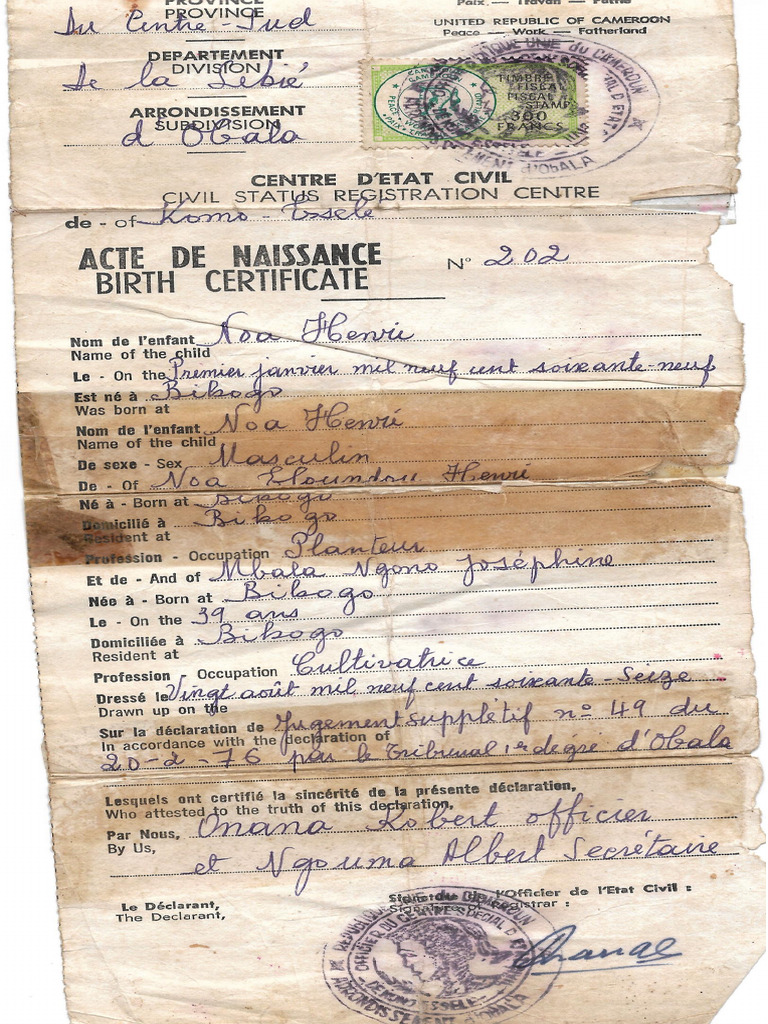 PROVINCE
PROVINCE
Du Centre-Sud
Paix — Travail — Patrie
UNITED REPUBLIC OF CAMEROON
Peace — Work — Fatherland
DEPARTEMENT
DIVISION
De la Lékié
ARRONDISSEMENT
SUBDIVISION
d'Obala
TIMBRE
FISCAL
FISCAL
STAMP
300
FRANCS
CENTRE D'ETAT CIVIL
CIVIL STATUS REGISTRATION CENTRE
de - of Komo-Essele
ACTE DE NAISSANCE
BIRTH CERTIFICATE
N° 202
Nom de l'enfant Noa Henri
Name of the child
Le - On the Premier janvier mil neuf cent soixante-neuf
Est né à Bikogo
Was born at
Nom de l'enfant Noa Henri
Name of the child
De sexe - Sex Masculin
De - Of Noa Eloundou Henri
Né à - Born at Bikogo
Domicilié à Bikogo
Resident at
Profession - Occupation Planteur
Et de - And of Mbala Ngono Joséphine
Née à - Born at Bikogo
Le - On the 39 ans
Domiciliée à Bikogo
Resident at
Profession - Occupation Cultivatrice
Dressé le Vingt août mil neuf cent soixante-Seize
Drawn up on the
Sur la déclaration de Jugement supplétif n° 49 du
In accordance with the declaration of
20-2-76 par le Tribunal 1er degré d'Obala
Lesquels ont certifié la sincérité de la présente déclaration,
Who attested to the truth of this declaration,
Par Nous, Onana Robert officier
By Us,
et Ngouma Albert Secrétaire
Le Déclarant,
The Declarant,
l'Officier de l'Etat Civil :
Registrar :